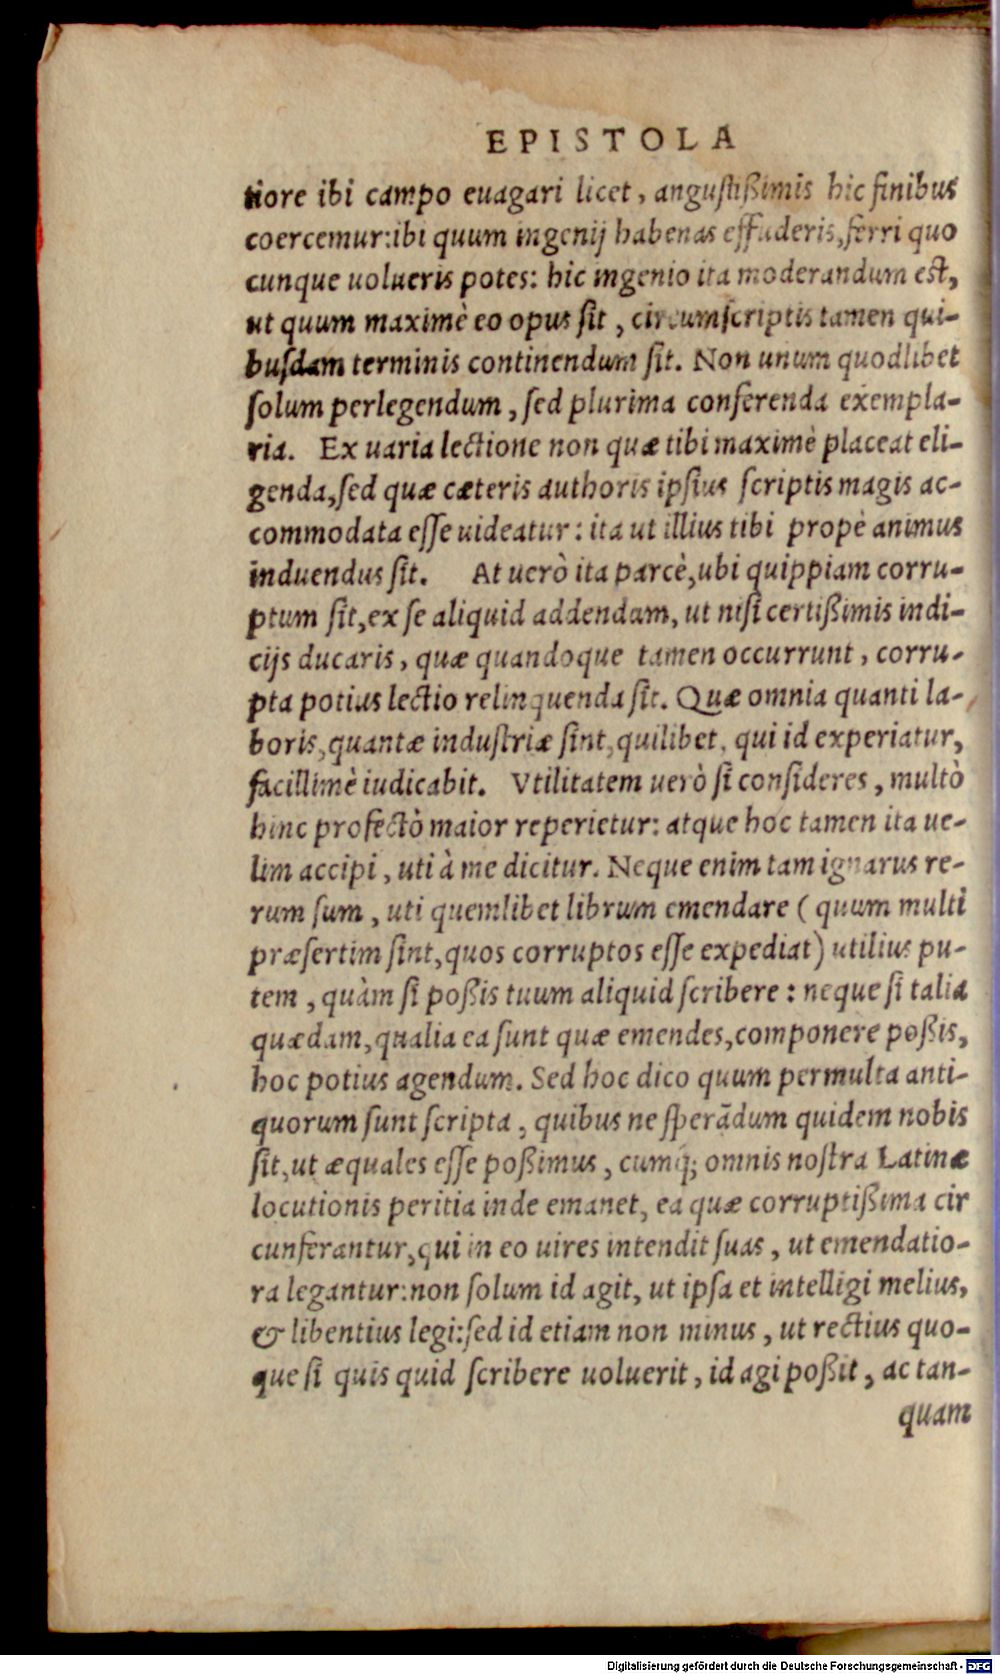 EPISTOLA
tiore ibi campo euagari licet, angustißimis hic finibus
coercemur:ibi quum ingenij habenas effuderis,ferri quo
cunque uolueris potes: hic ingenio ita moderandum est,
ut quum maximè eo opus sit, circumscriptis tamen qui-
busdam terminis continendum sit. Non unum quodlibet
solum perlegendum, sed plurima conferenda exempla-
ria. Ex uaria lectione non quæ tibi maximè placeat eli-
genda,sed quæ cæteris authoris ipsius scriptis magis ac-
commodata esse uideatur: ita ut illius tibi propè animus
induendus sit. At uerò ita parcè,ubi quippiam corru-
ptum sit,ex se aliquid addendam, ut nisi certißimis indi-
cijs ducaris, quæ quandoque tamen occurrunt, corru-
pta potius lectio relinquenda sit. Quæ omnia quanti la-
boris,quantæ industriæ sint,quilibet, qui id experiatur,
facillimè iudicabit. Vtilitatem uerò si consideres, multò
hinc profectò maior reperietur: atque hoc tamen ita ue-
lim accipi, uti à me dicitur. Neque enim tam ignarus re-
rum sum, uti quemlibet librum emendare (quum multi
præsertim sint,quos corruptos esse expediat) utilius pu-
tem, quàm si poßis tuum aliquid scribere: neque si talia
quædam,qualia ea sunt quæ emendes,componere poßis,
hoc potius agendum. Sed hoc dico quum permulta anti-
quorum sunt scripta, quibus ne sperãdum quidem nobis
sit,ut æquales esse poßimus, cumq; omnis nostra Latinæ
locutionis peritia inde emanet, ea quæ corruptißima cir
cunferantur,qui in eo uires intendit suas, ut emendatio-
ra legantur:non solum id agit, ut ipsa et intelligi melius,
& libentius legi:sed id etiam non minus, ut rectius quo-
que si quis quid scribere uoluerit, id agi poßit, ac tan-
quam
Digitalisierung gefördert durch die Deutsche Forschungsgemeinschaft - DFG